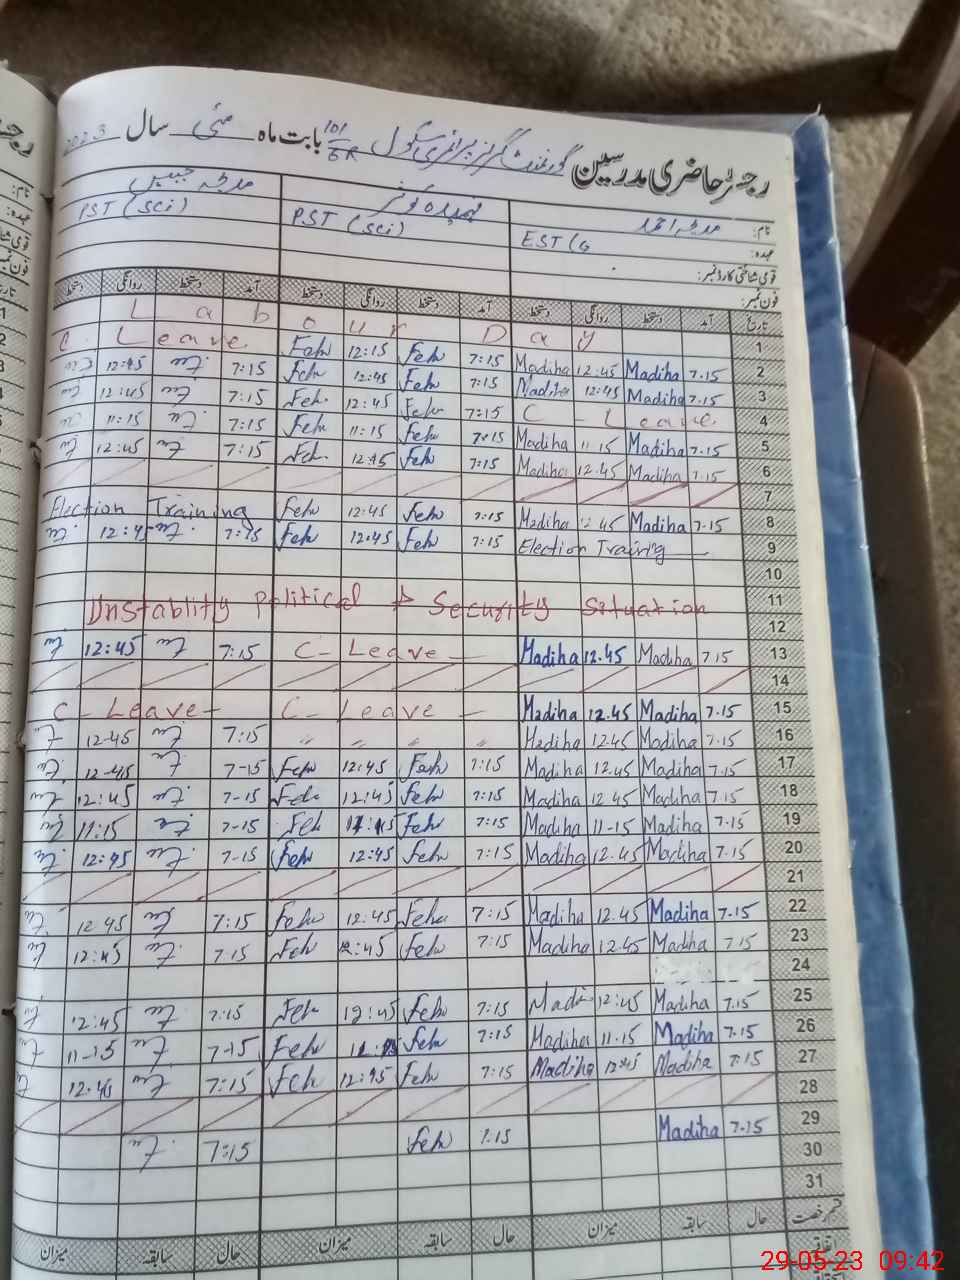 رجسٹر حاضری مدرسین گورنمنٹ گرلز پرائمری سکول 101/5R بابت ماہ مئی سال 2023
نام: مدیحہ احمد فہمیدہ کوثر مدیحہ جبیں
عہدہ: EST (G PST (Sci) PST (Sci)
قومی شناختی کارڈ نمبر:
فون نمبر:
تاریخ آمد دستخط روانگی دستخط آمد دستخط روانگی دستخط آمد دستخط روانگی دستخط
Labour Day 1
C. Leave Feh 12:15 Feh 7:15 Madiha 12.45 Madiha 7.15 2
12:45 7:15 Feh 12:45 Feh 7:15 Madiha 12:45 Madiha 7.15 3
12:45 7:15 Feh 12:45 Feh 7:15 C - Leave 4
11:15 7:15 Feh 11:15 Feh 7:15 Madiha 11.15 Madiha 7.15 5
12:45 7:15 Feh 12:45 Feh 7:15 Madiha 12.45 Madiha 7.15 6
7
Election Training Feh 12:45 Feh 7:15 Madiha 12.45 Madiha 7.15 8
12:45 7:15 Feh 12:45 Feh 7:15 Election Training 9
10
Unstablity Political & Security Situation 11
12
12:45 7:15 C- Leave Madiha 12.45 Madiha 7.15 13
14
C- Leave- C- Leave - Madiha 12.45 Madiha 7.15 15
12-45 7:15 〃 〃 〃 〃 Madiha 12.45 Madiha 7.15 16
12-45 7-15 Feh 12:45 Feh 7:15 Madiha 12.45 Madiha 7.15 17
12:45 7-15 Feh 12:45 Feh 7:15 Madiha 12.45 Madiha 7.15 18
11:15 7-15 Feh 11:15 Feh 7:15 Madiha 11-15 Madiha 7.15 19
12:45 7-15 Feh 12:45 Feh 7:15 Madiha 12.45 Madiha 7.15 20
21
12 45 7:15 Feh 12:45 Feh 7:15 Madiha 12.45 Madiha 7.15 22
12:45 7.15 Feh 12:45 Feh 7:15 Madiha 12.45 Madiha 7.15 23
24
12:45 7:15 Feh 12:45 Feh 7:15 Madi 12:45 Madiha 7.15 25
11-15 7-15 Feh 11:15 Feh 7:15 Madiha 11.15 Madiha 7.15 26
12:45 7:15 Feh 12:45 Feh 7:15 Madiha 12:45 Madiha 7:15 27
28
7:15 Feh 7:15 Madiha 7.15 29
30
31
قسم رخصت حال سابقہ میزان حال سابقہ میزان حال سابقہ میزان
29-05-23 09:42